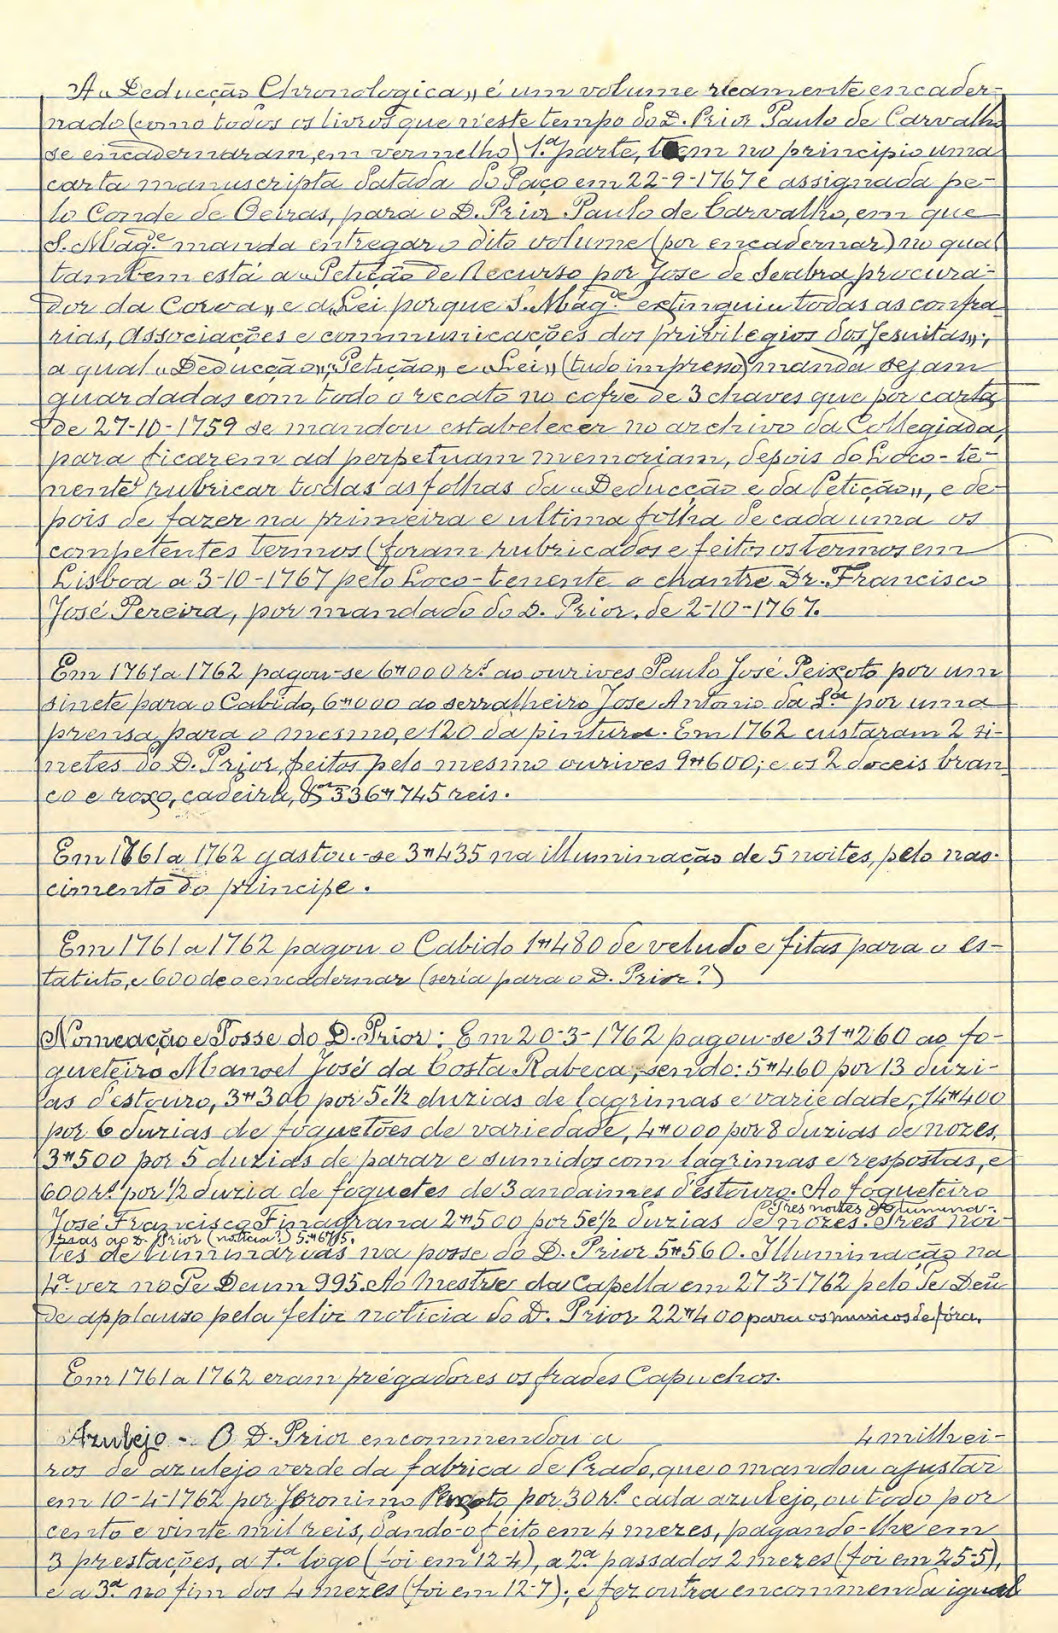 A «Deducção Chronologica» é um volume ricamente encader-
nado (como todos os livros que n'este tempo do D. Prior Paulo de Carvalho
se encadernaram, em vermelho) 1.ª parte, tem no principio uma
carta manuscripta datada do Paço em 22-9-1767 e assignada pe-
lo Conde de Oeiras, para o D. Prior Paulo de Carvalho, em que
S. Mag.de manda entregar o dito volume (por encadernar) no qual
tambem está a «Petição de Recurso por José de Seabra procura-
dor da Coroa», e a «Lei porque S. Mag.de extinguiu todas as confra-
rias, associações e communicações dos privilegios dos Jesuitas»;
a qual «Deducção», «Petição» e «Lei» (tudo impresso) manda sejam
guardadas com todo o recato no cofre de 3 chaves que por carta
de 27-10-1759 se mandou estabelecer no archivo da Collegiada,
para ficarem ad perpetuam memoriam, depois do Loco-te-
nente rubricar todas as folhas da «Deducção e da Petição», e de-
pois de fazer na primeira e ultima folha de cada uma os
competentes termos (foram rubricados e feitos os termos em
Lisboa a 3-10-1767 pelo Loco-tenente o chantre Dr. Francisco
José Pereira, por mandado do D. Prior, de 2-10-1767.
Em 1761 a 1762 pagou-se 6#000 r.s ao ourives Paulo José Peixoto por um
sinete para o Cabido, 6#000 ao serralheiro José Antonio da S.ª por uma
prensa para o mesmo, e 120 da pintura. Em 1762 custaram 2 si-
netes do D. Prior, feitos pelo mesmo ourives 9#600; e os 2 doceis bran-
co e roxo, cadeira, &ª 336#745 reis.
Em 1761 a 1762 gastou-se 3#435 na illuminação de 5 noites, pelo nas-
cimento do principe.
Em 1761 a 1762 pagou o Cabido 1#480 de veludo e fitas para o es-
tatuto, e 600 de o encadernar (seria para o D. Prior?)
Nomeação e Posse do D. Prior: Em 20-3-1762 pagou-se 31#260 ao fo-
gueteiro Manoel José da Costa Rabeca, sendo: 5#460 por 13 duzi-
as d'estouro, 3#300 por 5 e ½ duzias de lagrimas e variedade, 14#400
por 6 duzias de foguetões de variedade, 4#000 por 8 duzias de nozes,
3#500 por 5 duzias de parar e sumidos com lagrimas e respostas, e
600 r.s por ½ duzia de foguetes de 3 andaimes d'estouro. Ao fogueteiro
José Francisco Finagrana 2#500 por 5 e ½ duzias de nozes. Tres noi-
Tres noites de lumina-
rias ao D. Prior (noticia?) 5#675.
tes de luminarias na posse do D. Prior 5#560. Illuminação na
4.ª vez no Te Deum 995. Ao Mestre da Capella em 27-3-1762 pelo Te Deũ
de applauso pela feliz noticia do D. Prior 22#400 para os musicos de fóra.
Em 1761 a 1762 eram prégadores os frades Capuchos.
Azulejo - O D. Prior encommendou a 4 milhei-
ros de azulejo verde da fabrica de Prado, que o mandou ajustar
em 10-4-1762 por Jeronimo Peixoto por 30 r.s cada azulejo, ou todo por
cento e vinte mil reis, dando-o feito em 4 mezes, pagando-lhe em
3 prestações, a 1.ª logo (foi em 12-4), a 2.ª passados 2 mezes (foi em 25-5),
e a 3.ª no fim dos 4 mezes (foi em 12-7); e fez outra encommenda igual